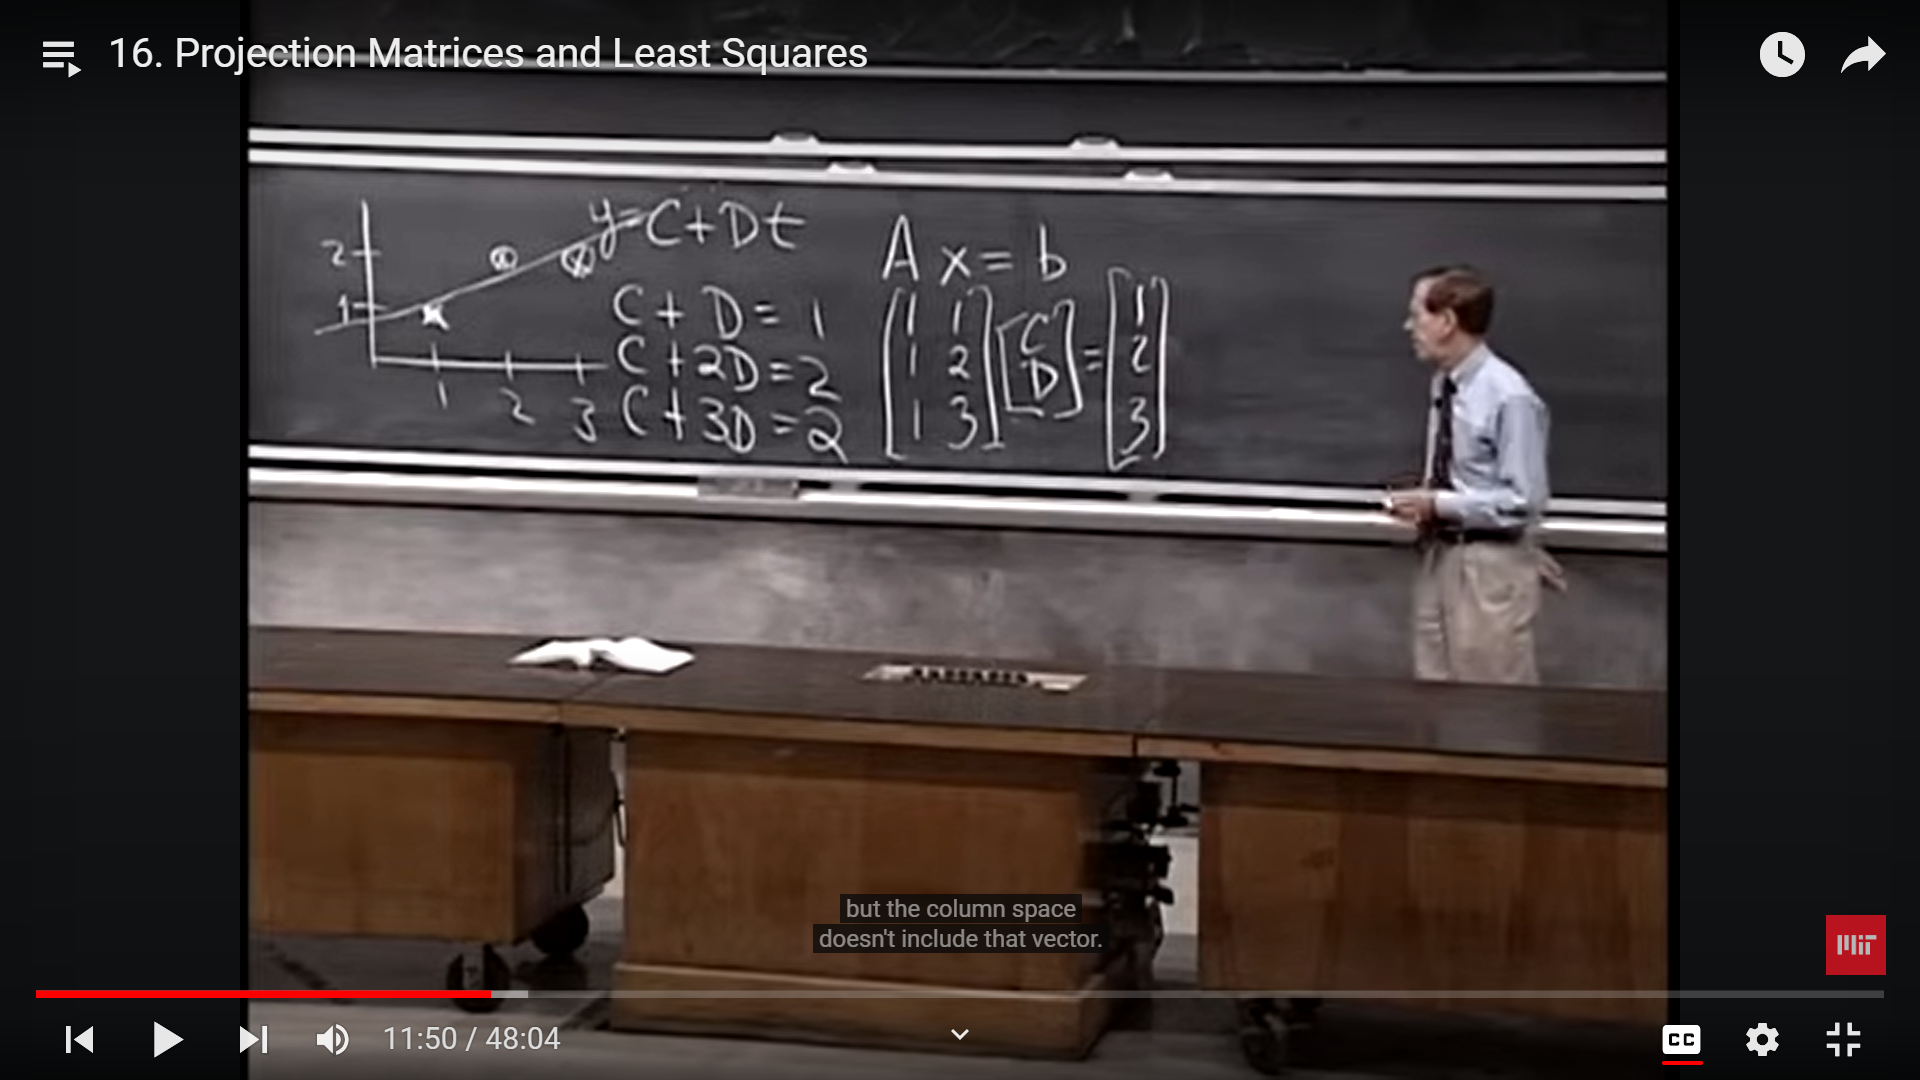 16. Projection Matrices and Least Squares
y=C+Dt
2
1
1 2 3
C + D = 1
C + 2D = 2
C + 3D = 2
A x = b
[1 1] [C] = [1]
[1 2] [D] [2]
[1 3] [3]
but the column space
doesn't include that vector.
MIT
11:50 / 48:04
CC